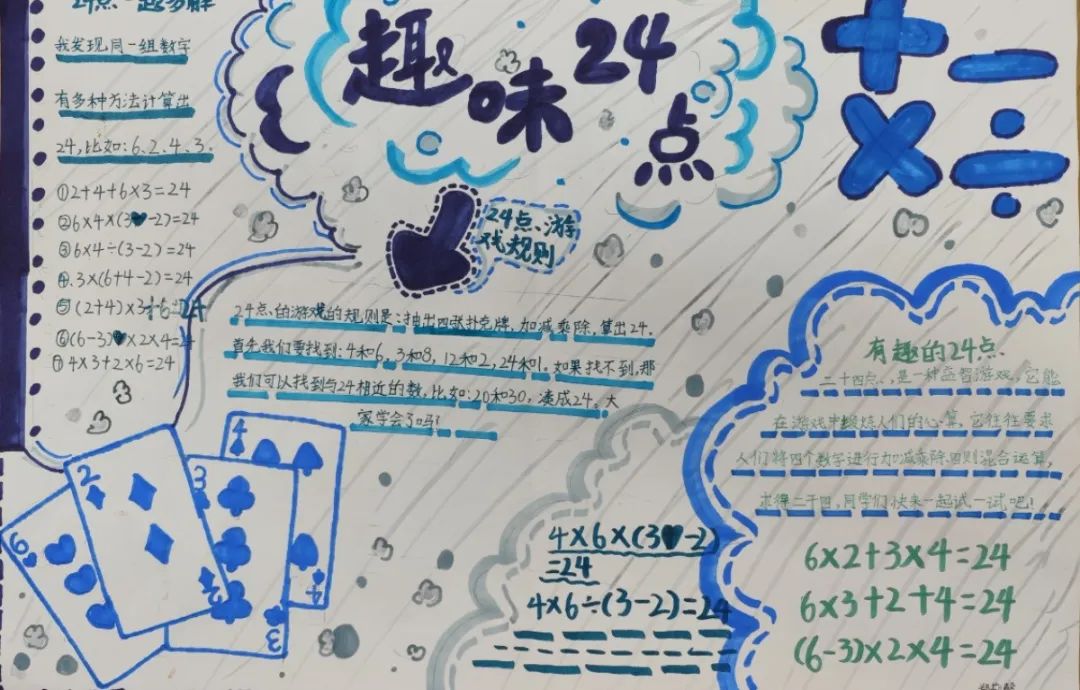 24点一题多解
我发现同一组数字
有多种方法计算出
24,比如:6、2、4、3.
①2+4+6×3=24
②6×4×(3-2)=24
③6×4÷(3-2)=24
④.3×(6+4-2)=24
⑤(2+4)×3+6=24
⑥(6-3)×2×4=24
⑦4×3+2×6=24
趣味24点
+
-
×
÷
24点、游
戏规则
24点、的游戏的规则是:抽出四张扑克牌,加减乘除,算出24.
首先我们要找到:4和6,3和8,12和2,24和1,如果找不到,那
我们可以找到与24相近的数,比如:20和30,凑成24。大
家学会了吗!
有趣的24点
二十四点、,是一种益智游戏,它能
在游戏中锻炼人们的心算,它往往要求
人们将四个数字进行加减乘除四则混合运算,
求得二十四,同学们快来一起试一试吧!
6×2+3×4=24
6×3+2+4=24
(6-3)×2×4=24
4×6×(3-2)
=24
4×6÷(3-2)=24
4
2
3
6
2
4
3